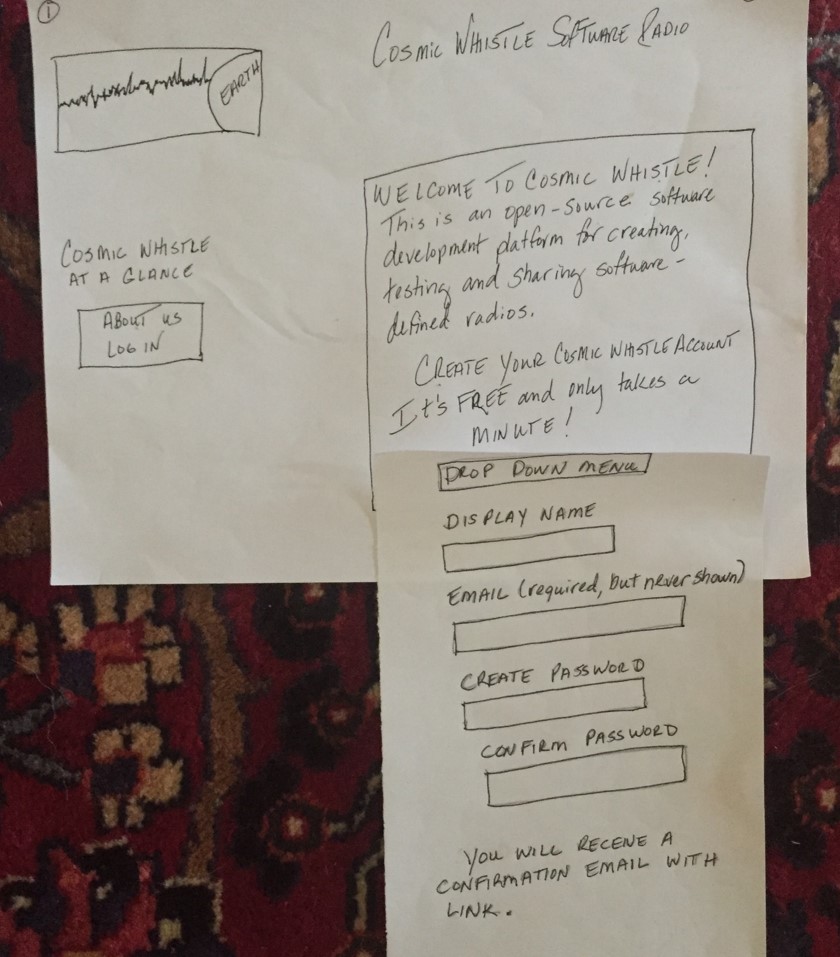 1
COSMIC WHISTLE SOFTWARE RADIO
EARTH
COSMIC WHISTLE
AT A GLANCE
ABOUT US
LOG IN
WELCOME TO COSMIC WHISTLE!
This is an open-source software
development platform for creating,
testing and sharing software-
defined radios.
CREATE YOUR COSMIC WHISTLE ACCOUNT
It's FREE and only takes a
MINUTE!
DROP DOWN MENU
DISPLAY NAME
EMAIL (required, but never shown)
CREATE PASSWORD
CONFIRM PASSWORD
YOU WILL RECENE A
CONFIRMATION EMAIL WITH
LINK.